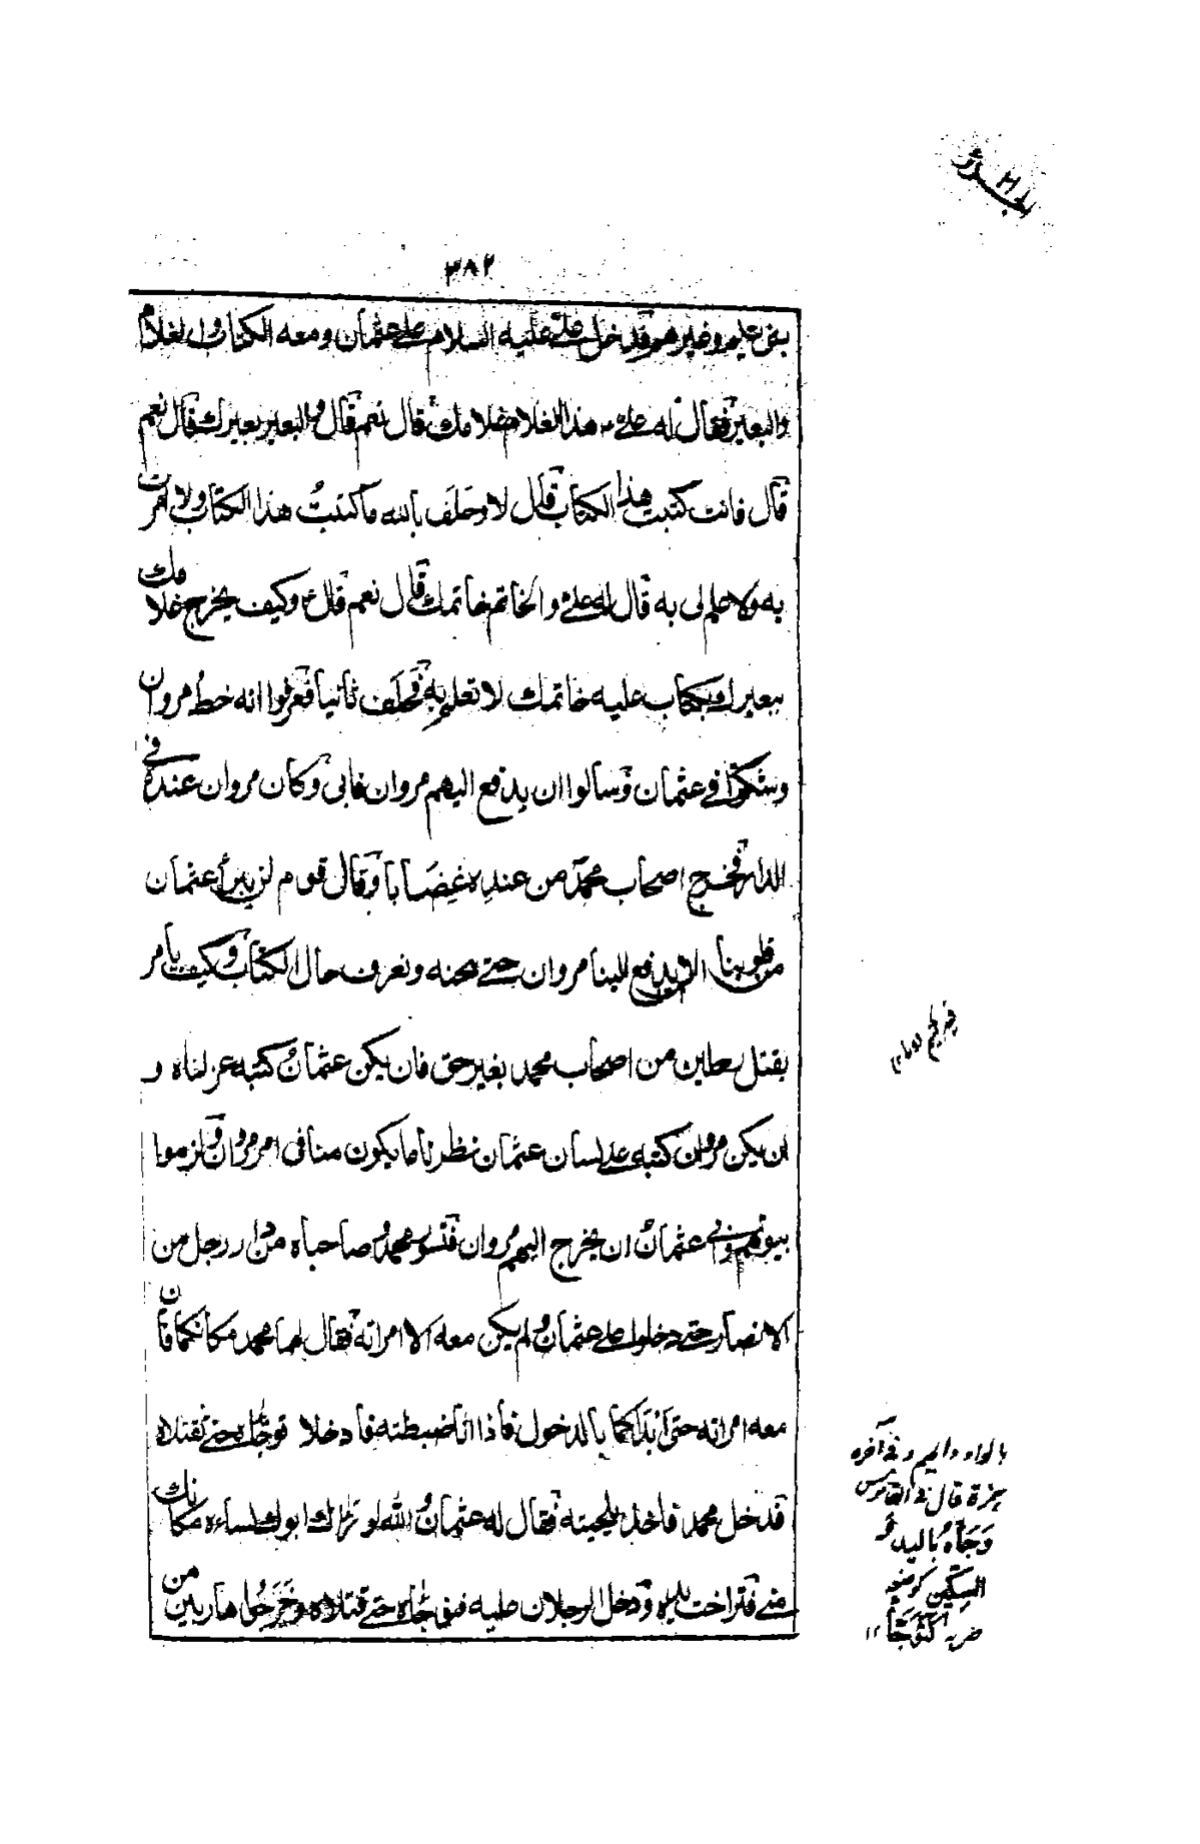 ٣٨٢
بنى عليم وغيرهم قد خل على عليه السلام على عثمان ومعه الكتاب والغلام
والبعير فقال له على هذا الغلام غلامك قال نعم قال والبعير بعيرك قال نعم
قال فانت كتبت هذا الكتاب قال لا وحلف بالله ما كتبتُ هذا الكتاب ولا امرت
به ولا علم لى به قال له على والخاتم خاتمك قال نعم قال وكيف يخرج غلامك
ببعيرك وبكتاب عليه خاتمك لا تعلم به فحلف ثانيا فعرفوا انه خط مروان
وشكوا في عثمان وسالوا ان يدفع اليهم مروان فابى وكان مروان عنده في
الدار فخرج اصحاب محمد من عنده غضابا وقال قوم لن يبرأ عثمان
من قلوبنا الا ان يدفع الينا مروان حتى نمحنه ونعرف حال الكتاب وكيف يأمر
بقتل رجلين من اصحاب محمد بغير حق فان يكن عثمان كتبه عزلناه و
ان يكن مروان كتبه على لسان عثمان نظرنا ما يكون منا فى امر مروان ولزموا
بيوتهم وابى عثمان ان يخرج اليهم مروان فتسور محمد وصاحباه من دار رجل من
الانصار حتى دخلوا على عثمان ولم يكن معه الا امراته فقال لهما محمد مكانكما فان
معه امراته حتى ابدأكما بالدخول فاذا انا ضبطته فادخلا فوجاه حتى تقتلاه
فدخل محمد فاخذ بلحيته فقال له عثمان والله لو رآك ابوك لساءه مكانك
منى فتراخت يده ودخل الرجلان عليه فوجاه حتى قتلاه وخرجوا هاربين من
بالواو والجيم وفى آخره
همزة قال فى القاموس
وَجَأهُ باليد و
السكين كوضعه
ضربه كتوجأ ١٢